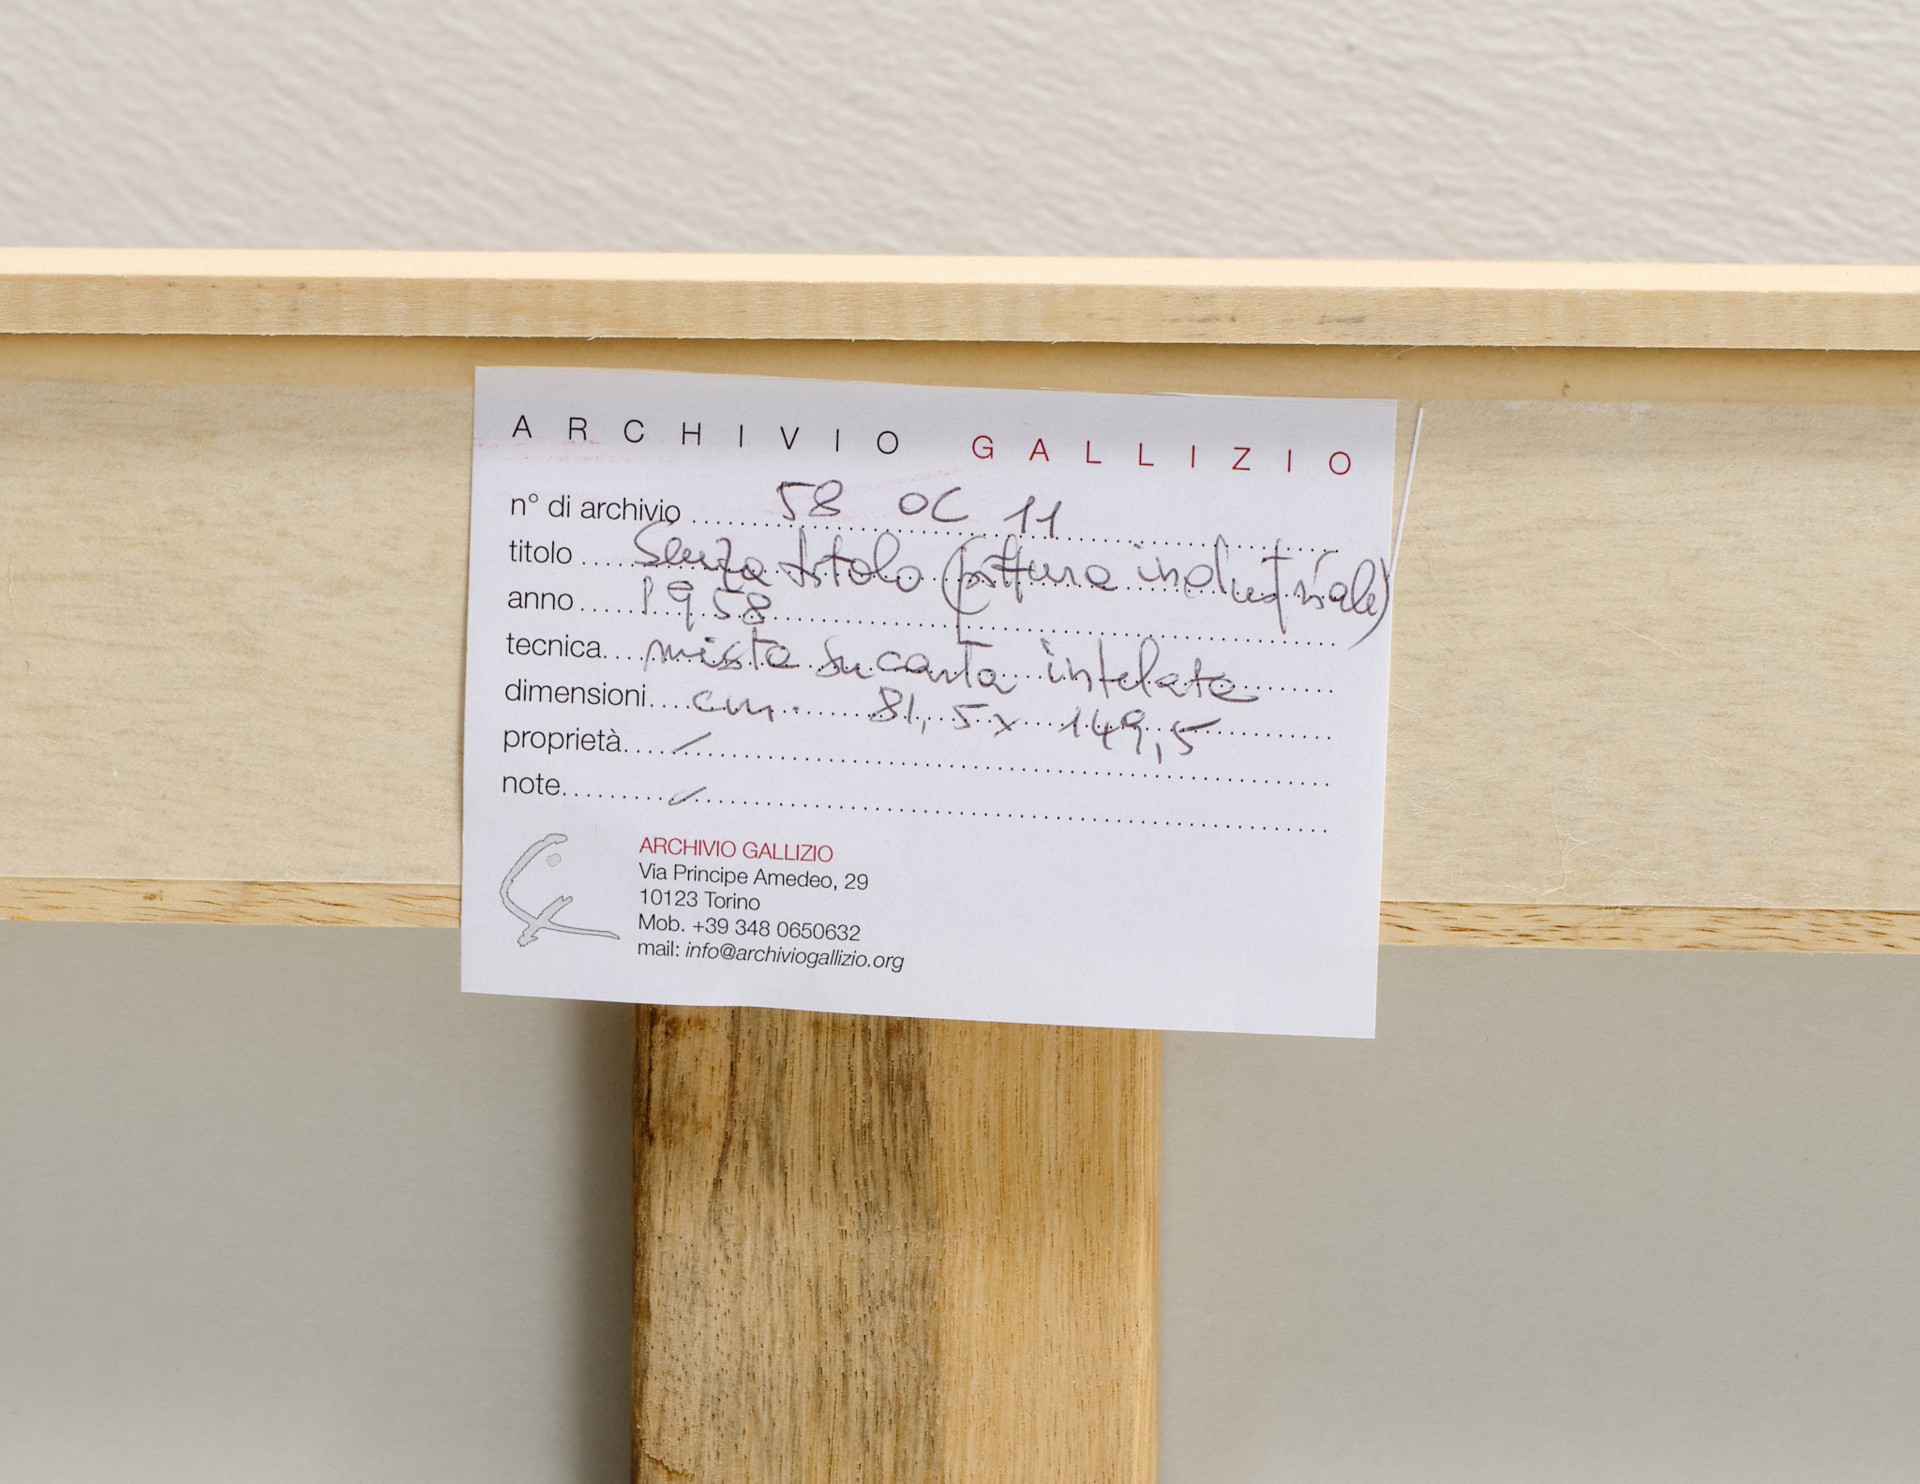 ARCHIVIO GALLIZIO
n° di archivio 58 OC 11
titolo Senza titolo (pittura industriale)
anno 1958
tecnica mista su carta intelata
dimensioni cm. 81,5 x 149,5
proprietà /
note /
ARCHIVIO GALLIZIO
Via Principe Amedeo, 29
10123 Torino
Mob. +39 348 0650632
mail: info@archiviogallizio.org